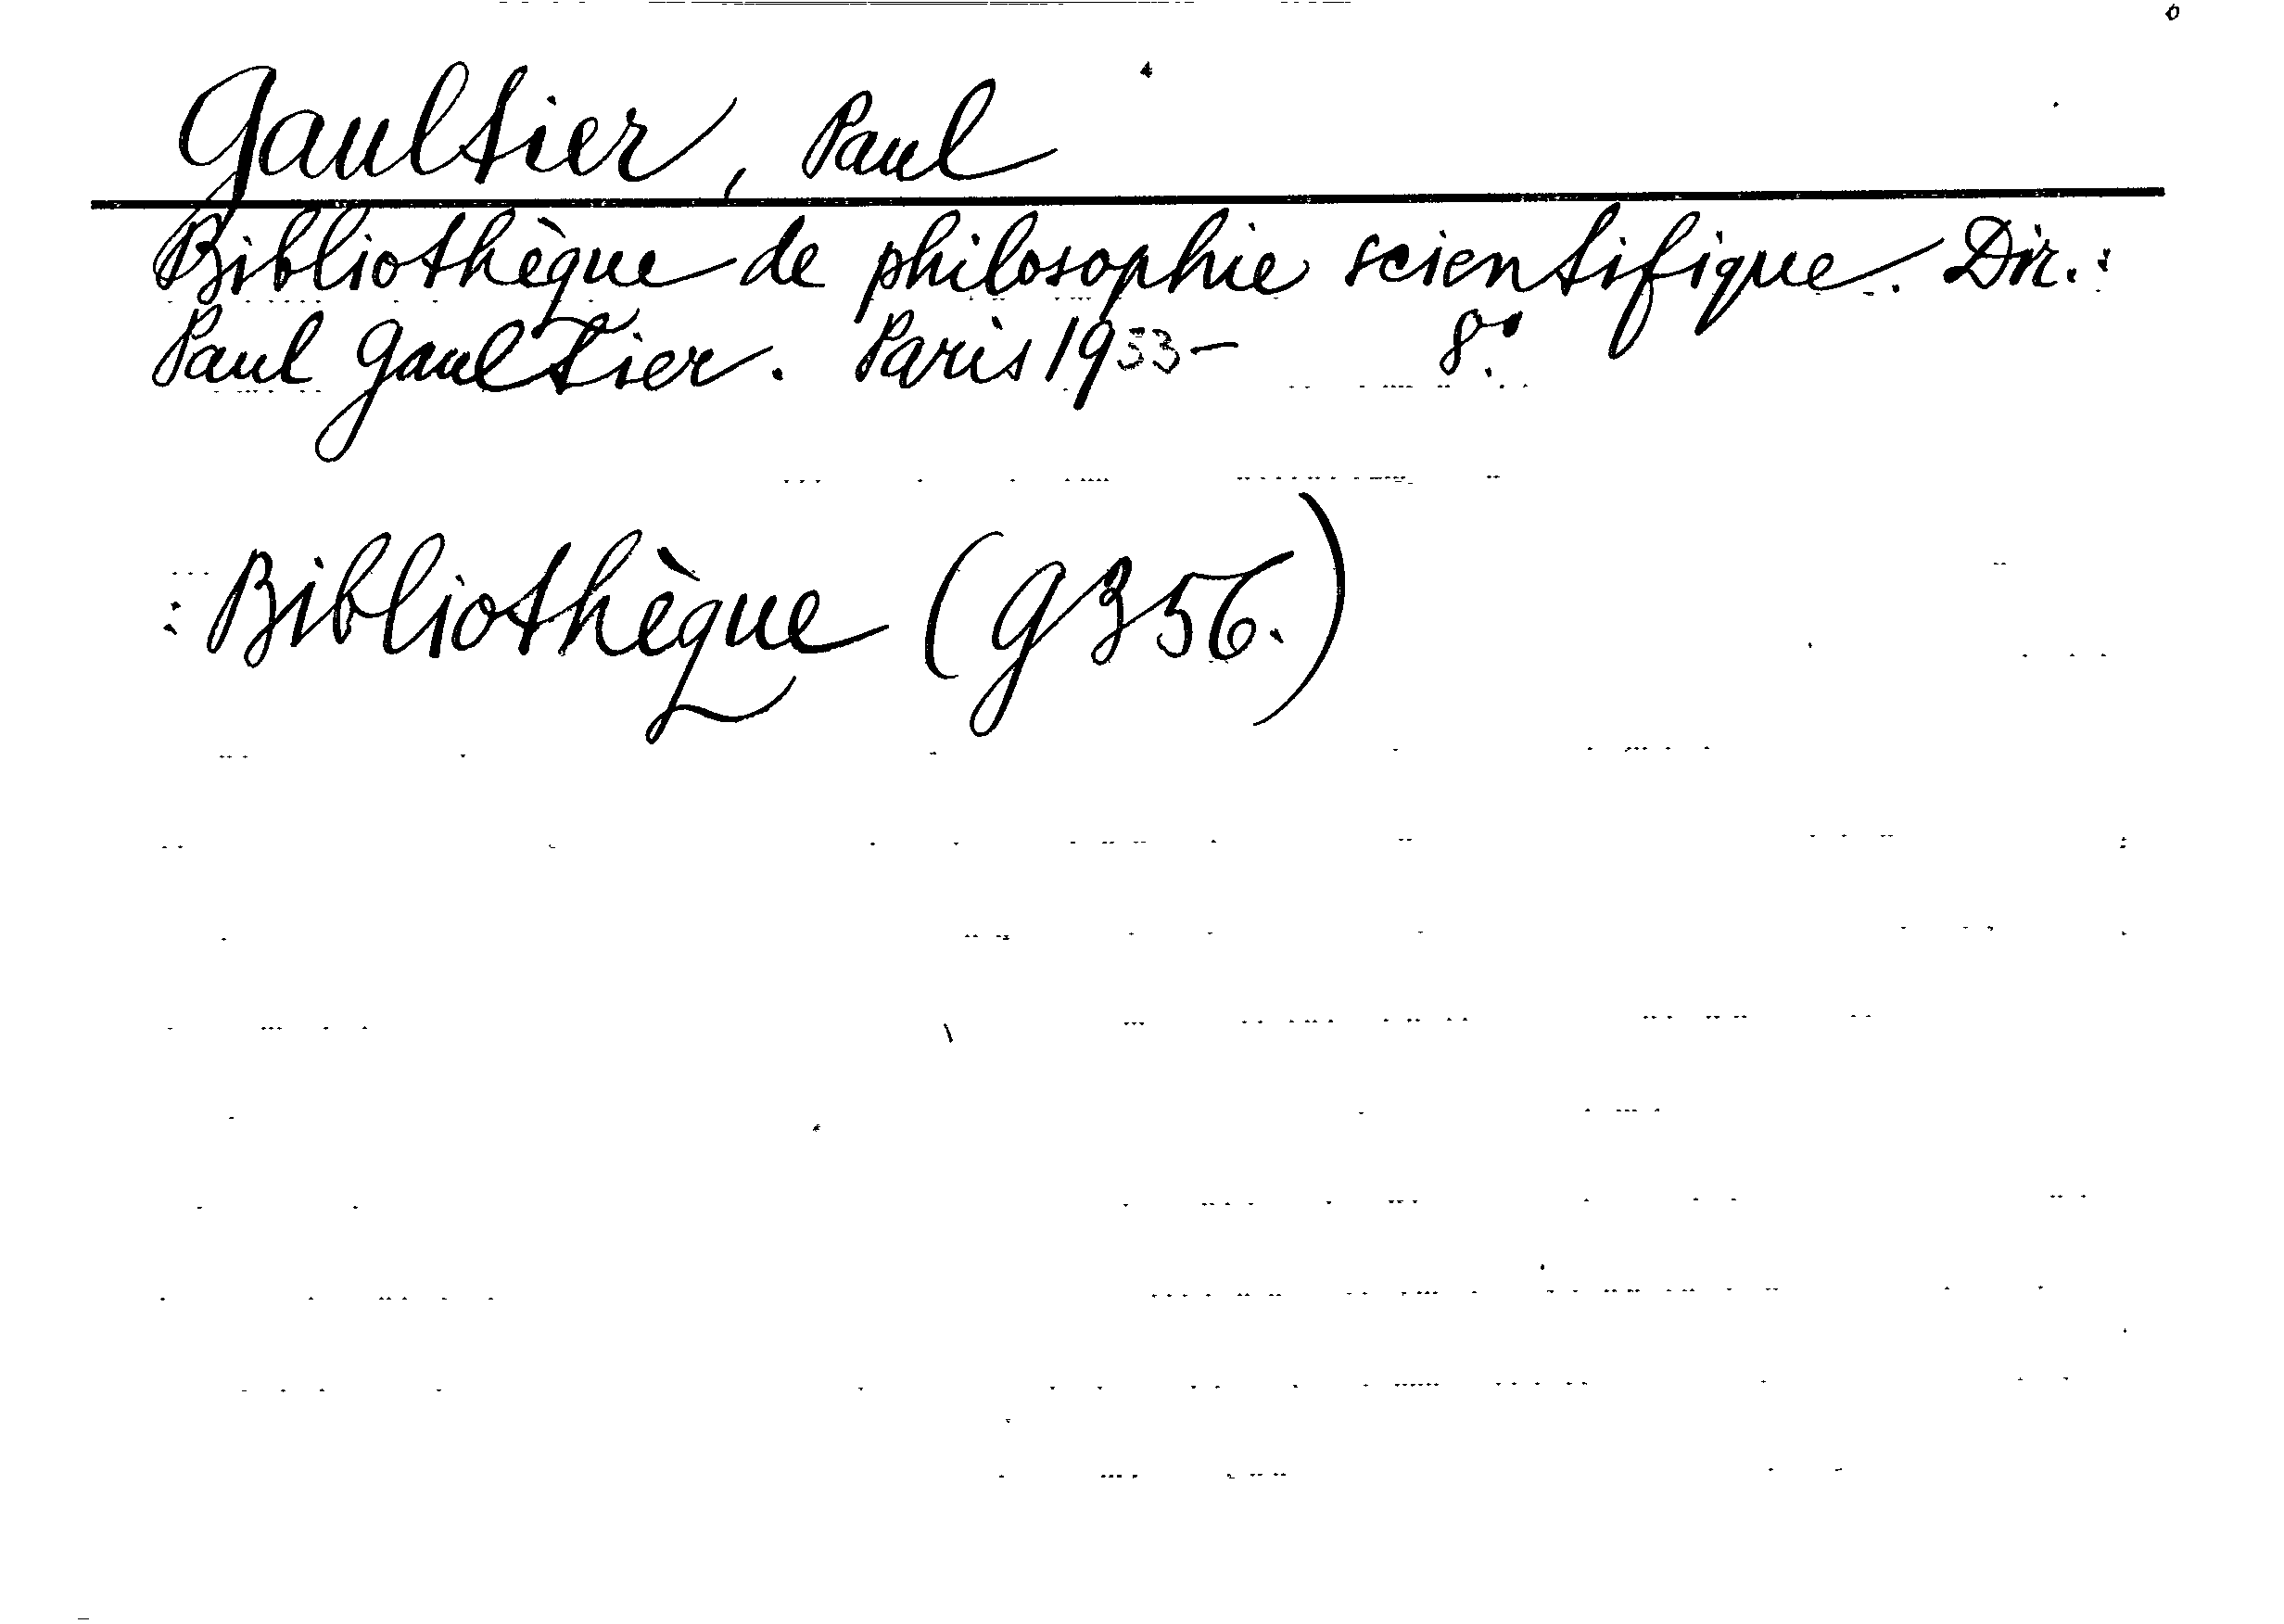 Gaultier, Paul
Bibliothèque de philosophie scientifique. Dir.:
Paul Gaultier. Paris 1933– 8°.
: Bibliothèque (G 356.)